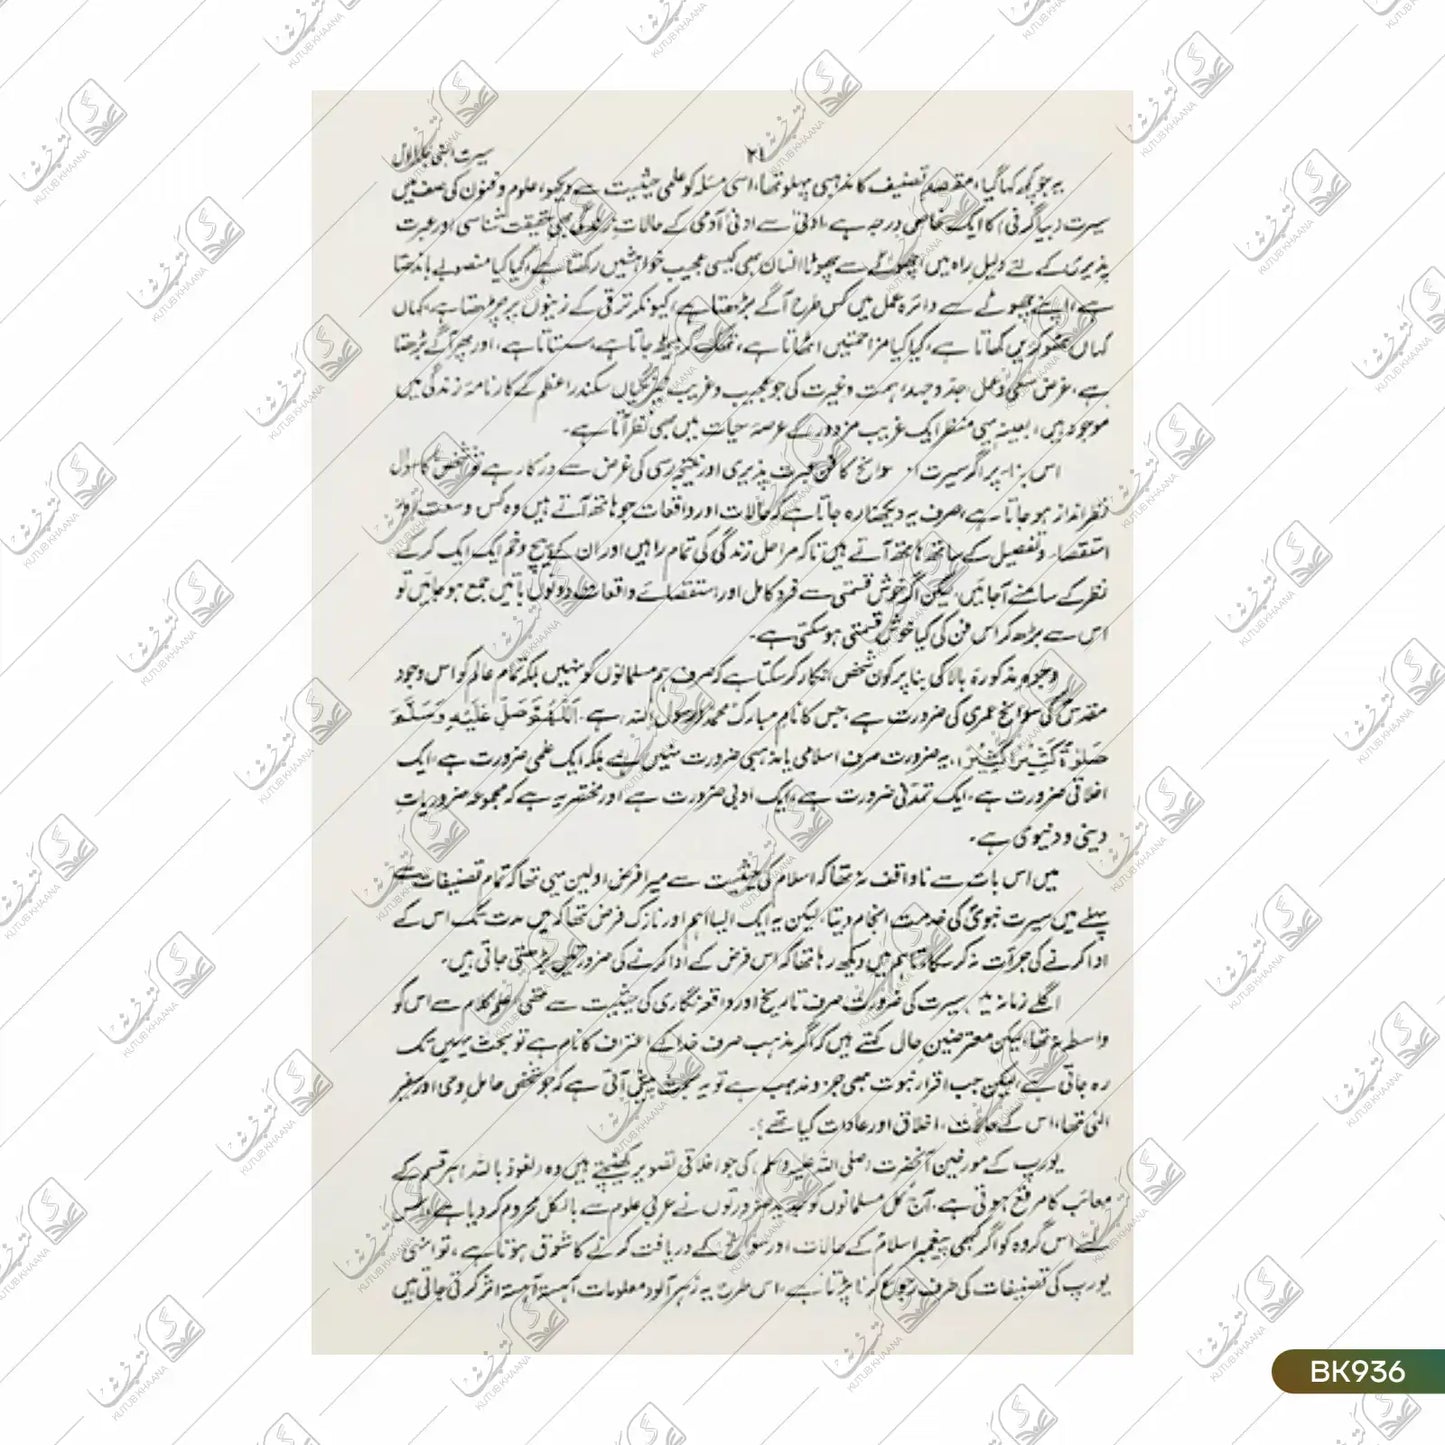 سیرت النبیؐ جلد اوّل ۲۱
یہ جو کچھ کہا گیا، مقصدِ تصنیف کا مذہبی پہلو تھا، اسی مسئلہ کو علمی حیثیت سے دیکھو، علوم و فنون کی صف میں
سیرت (بیاگرافی) کا ایک خاص درجہ ہے، ادنیٰ سے ادنیٰ آدمی کے حالاتِ زندگی بھی حقیقت شناسی اور عبرت
پذیری کے لئے دلیلِ راہ ہیں، چھوٹے سے چھوٹا انسان بھی کیسی عجیب خواہشیں رکھتا ہے، کیا کیا منصوبے باندھتا
ہے، اپنے چھوٹے سے دائرہ عمل میں کس طرح آگے بڑھتا ہے، کیونکر ترقی کے زینوں پر چڑھتا ہے، کہاں
کہاں ٹھوکریں کھاتا ہے، کیا کیا مزاحمتیں اٹھاتا ہے، تھک کر بیٹھ جاتا ہے، سستاتا ہے، اور پھر آگے بڑھتا
ہے، غرض سعی و عمل، جد و جہد، ہمت و غیرت کی جو عجیب و غریب نیرنگیاں سکندر اعظم کے کارنامۂ زندگی میں
موجود ہیں، بعینہ یہی منظر ایک غریب مزدور کے عرصۂ حیات میں بھی نظر آتا ہے۔
اس بنا پر اگر سیرت اور سوانح کا فن عبرت پذیری اور نتیجہ رسی کی غرض سے درکار ہے تو شخص کا سوال
نظر انداز ہو جاتا ہے، صرف یہ دیکھنا رہ جاتا ہے کہ حالات اور واقعات جو ہاتھ آتے ہیں وہ کس وسعت اور
استقصاء و تفصیل کے ساتھ ہاتھ آتے ہیں تاکہ مراحل زندگی کی تمام راہیں اور ان کے پیچ و خم ایک ایک کر کے
نظر کے سامنے آجائیں، لیکن اگر خوش قسمتی سے فرد کامل اور استقصائے واقعات دونوں باتیں جمع ہو جائیں تو
اس سے بڑھ کر اس فن کی کیا خوش قسمتی ہو سکتی ہے۔
وجوہ مذکورۂ بالا کی بنا پر کون شخص انکار کر سکتا ہے کہ صرف ہم مسلمانوں کو نہیں بلکہ تمام عالم کو اس وجود
مقدس کی سوانح عمری کی ضرورت ہے، جس کا نام مبارک محمدؐ رسول اللہ، ہے۔ اَللّٰهُمَّ صَلِّ عَلَيْهِ وَسَلَّمَ
صَلٰوةً كَثِيْرًا كَثِيْرًا، یہ ضرورت صرف اسلامی یا مذہبی ضرورت نہیں ہے بلکہ ایک علمی ضرورت ہے، ایک
اخلاقی ضرورت ہے، ایک تمدنی ضرورت ہے، ایک ادبی ضرورت ہے اور مختصر یہ ہے کہ مجموعہ ضروریاتِ
دینی و دنیوی ہے۔
میں اس بات سے ناواقف نہ تھا کہ اسلام کی حیثیت سے میرا فرض اولین یہی تھا کہ تمام تصنیفات سے
پہلے میں سیرت نبویؐ کی خدمت انجام دیتا، لیکن یہ ایک ایسا اہم اور نازک فرض تھا کہ میں مدت تک اس کے
ادا کرنے کی جرأت نہ کر سکا، تاہم میں دیکھ رہا تھا کہ اس فرض کے ادا کرنے کی ضرورتیں بڑھتی جاتی ہیں۔
اگلے زمانہ میں سیرت کی ضرورت صرف تاریخ اور واقعہ نگاری کی حیثیت سے تھی، علم کلام سے اس کو
واسطہ نہ تھا، لیکن معترضین حال کہتے ہیں کہ اگر مذہب صرف خدا کے اعتراف کا نام ہے تو بحث یہیں تک
رہ جاتی ہے، لیکن جب اقرار نبوت بھی جزو مذہب ہے تو یہ بحث پیش آتی ہے کہ جو شخص حاملِ وحی اور سفیر
الٰہی تھا، اس کے حالات، اخلاق اور عادات کیا تھے؟
یورپ کے مورخین آنحضرت (صلی اللہ علیہ وسلم) کی جو اخلاقی تصویر کھینچتے ہیں وہ (نعوذ باللہ) ہر قسم کے
معائب کا مرقع ہوتی ہے، آج کل مسلمانوں کو جدید ضرورتوں نے عربی علوم سے بالکل محروم کر دیا ہے، اس
لئے اس گروہ کو اگر کبھی پیغمبرِ اسلامؐ کے حالات اور سوانح کے دریافت کرنے کا شوق ہوتا ہے، تو انہی
یورپ کی تصنیفات کی طرف رجوع کرنا پڑتا ہے، اس طرح یہ زہر آلود معلومات آہستہ آہستہ اثر کرتی جاتی ہیں
BK936